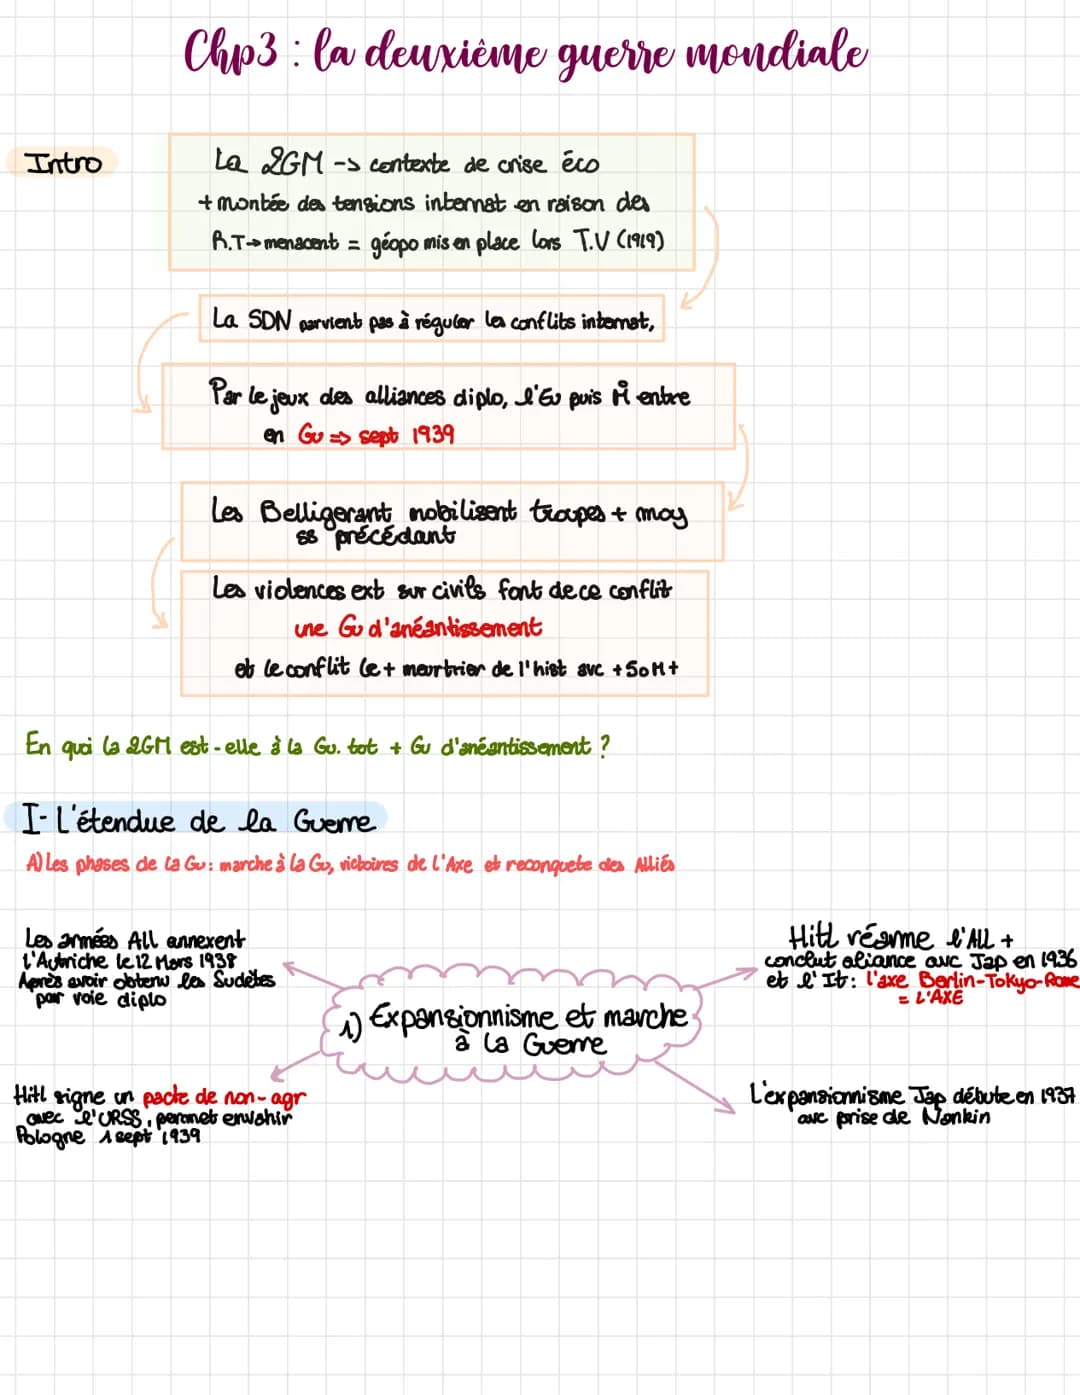 Chp3 : la deuxième guerre mondiale
Intro
La 2GM -> contexte de crise éco
+ montée des tensions internat en raison des
R.T-> menacent = géopo mis en place lors T.V (1919)
La SDN parvient pas à réguler les conflits internat,
Par le jeux des alliances diplo, l'Eu puis M entre
en Gu => sept 1939
Les Belligerant mobilisent troupes + moy
ss précédant
Les violences ext sur civils font de ce conflit
une Gu d'anéantissement
et le conflit le + meurtrier de l'hist avc +50M+
En quoi la 2GM est-elle à la Gu. tot + Gu d'anéantissement ?
I- L'étendue de la Guerre
A) Les phases de la Gu : marche à la Gu, victoires de l'Axe et reconquete des Alliés
Les armées All annexent
l'Autriche le 12 Mars 1938
Après avoir obtenu les Sudètes
par voie diplo
Hitl réarme l'ALL +
conclut aliance avc Jap en 1936
et l'It : l'axe Berlin-Tokyo-Rome
= L'AXE
1) Expansionnisme et marche
à la Guerre
Hitl signe un pacte de non-agr
avec l'URSS, permet envahir
Pologne 1 sept 1939
L'expansionnisme Jap débute en 1937
avc prise de Nankin